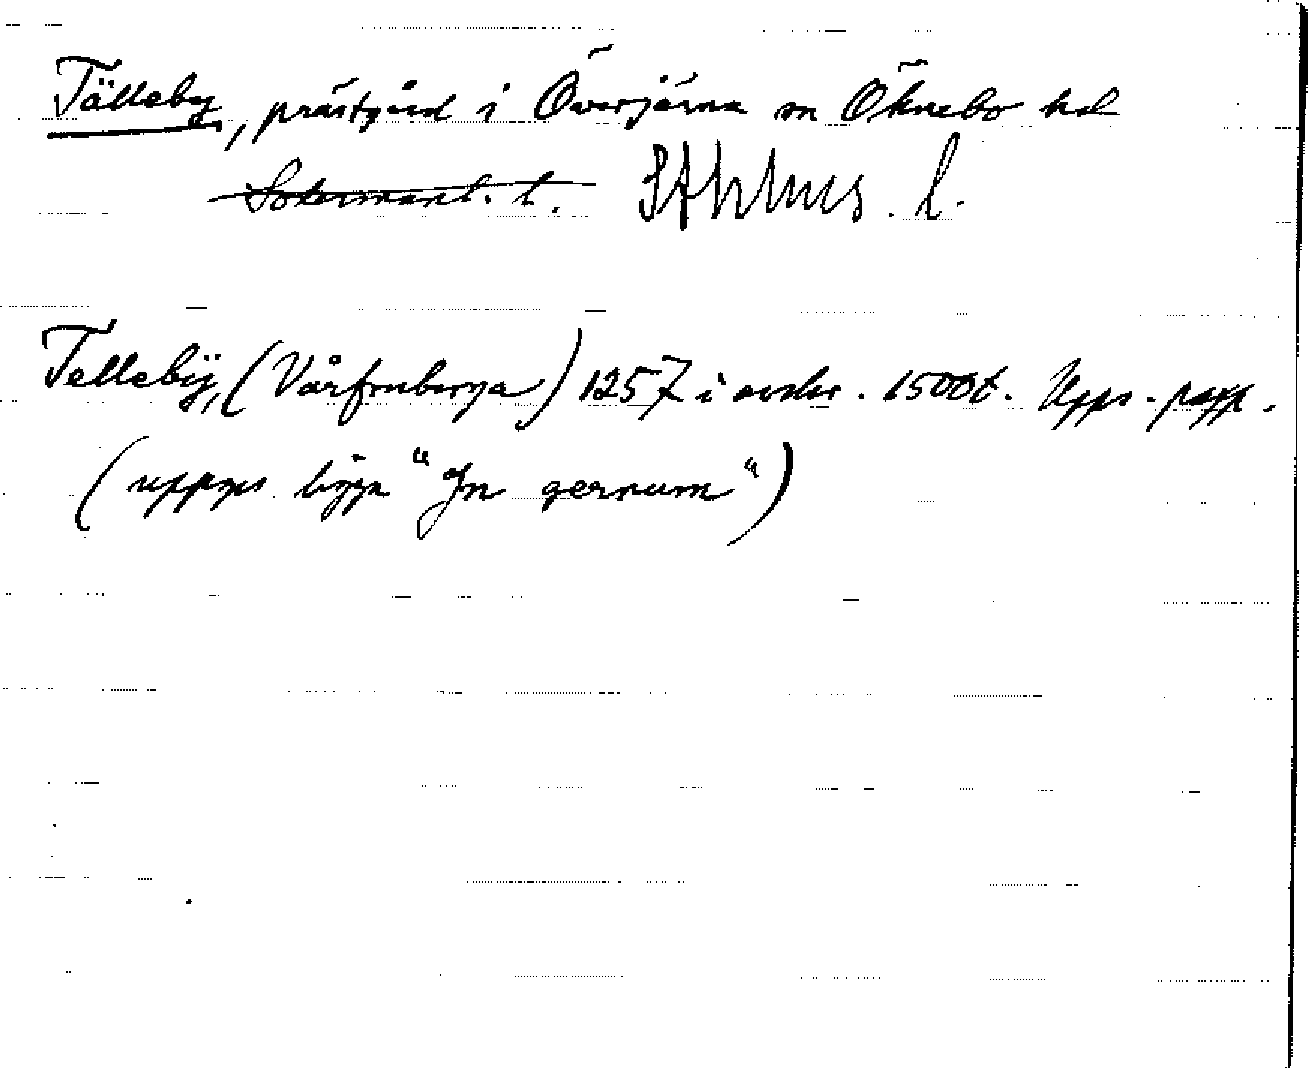 Tälleby, prästgård i Överjärna sn Öknebo hd
Södermanl. l. Sthlms. l.
Tellebÿ, (Vårfruberga) 1257 i avskr. 1500t. Upps. papp.
(uppges ligga "Jn gernum")